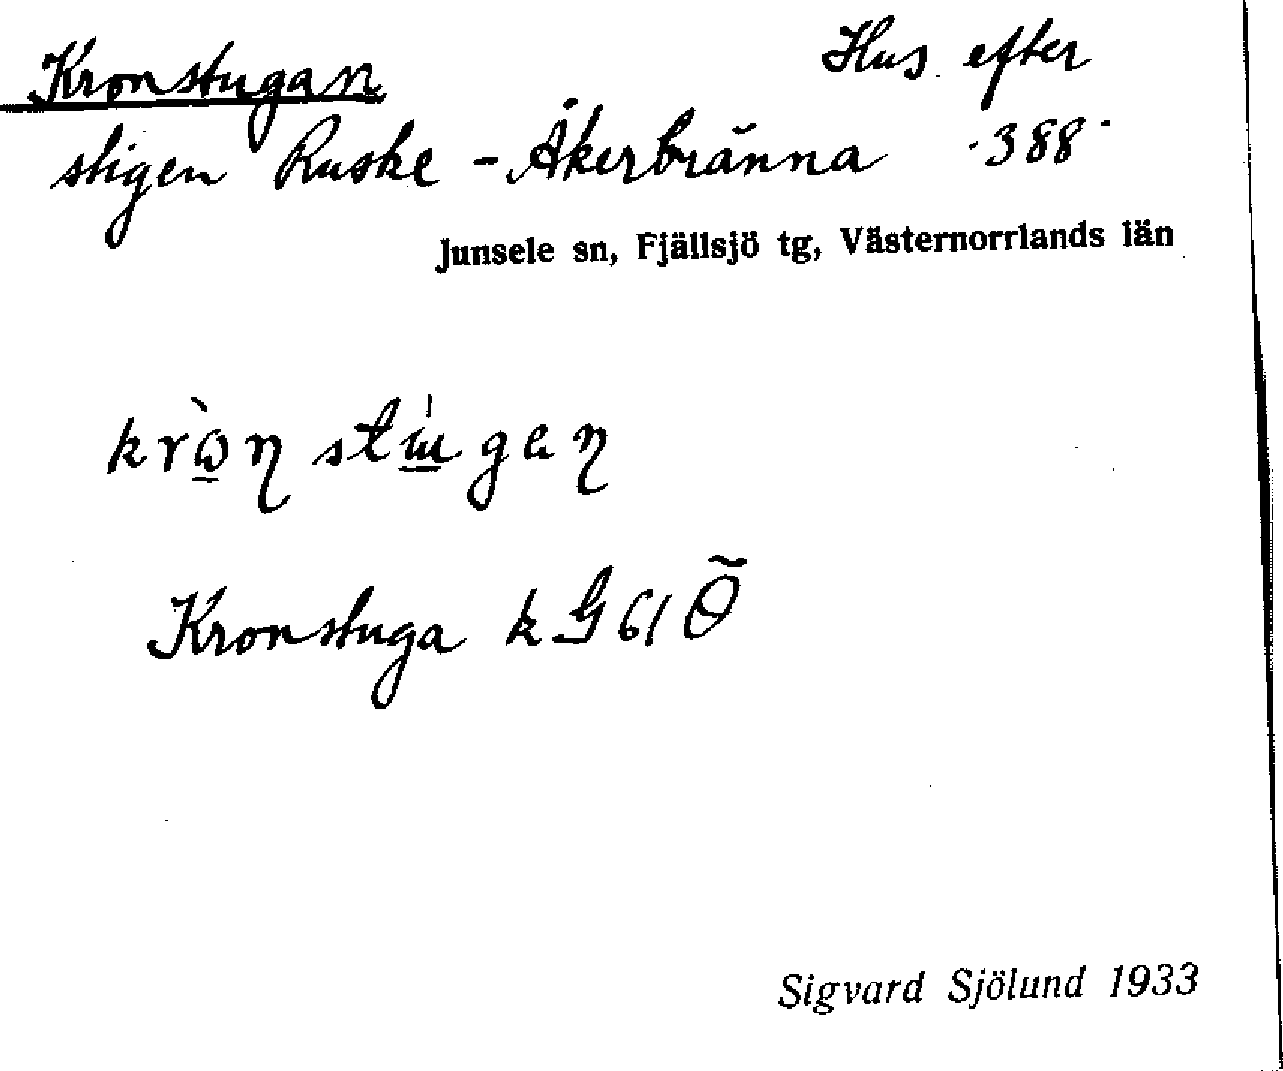 Kronstugan Hus efter
stigen Ruske - Åkerbränna ·388·
Junsele sn, Fjällsjö tg, Västernorrlands län
Kronstuga k G 61 Ö
Sigvard Sjölund 1933